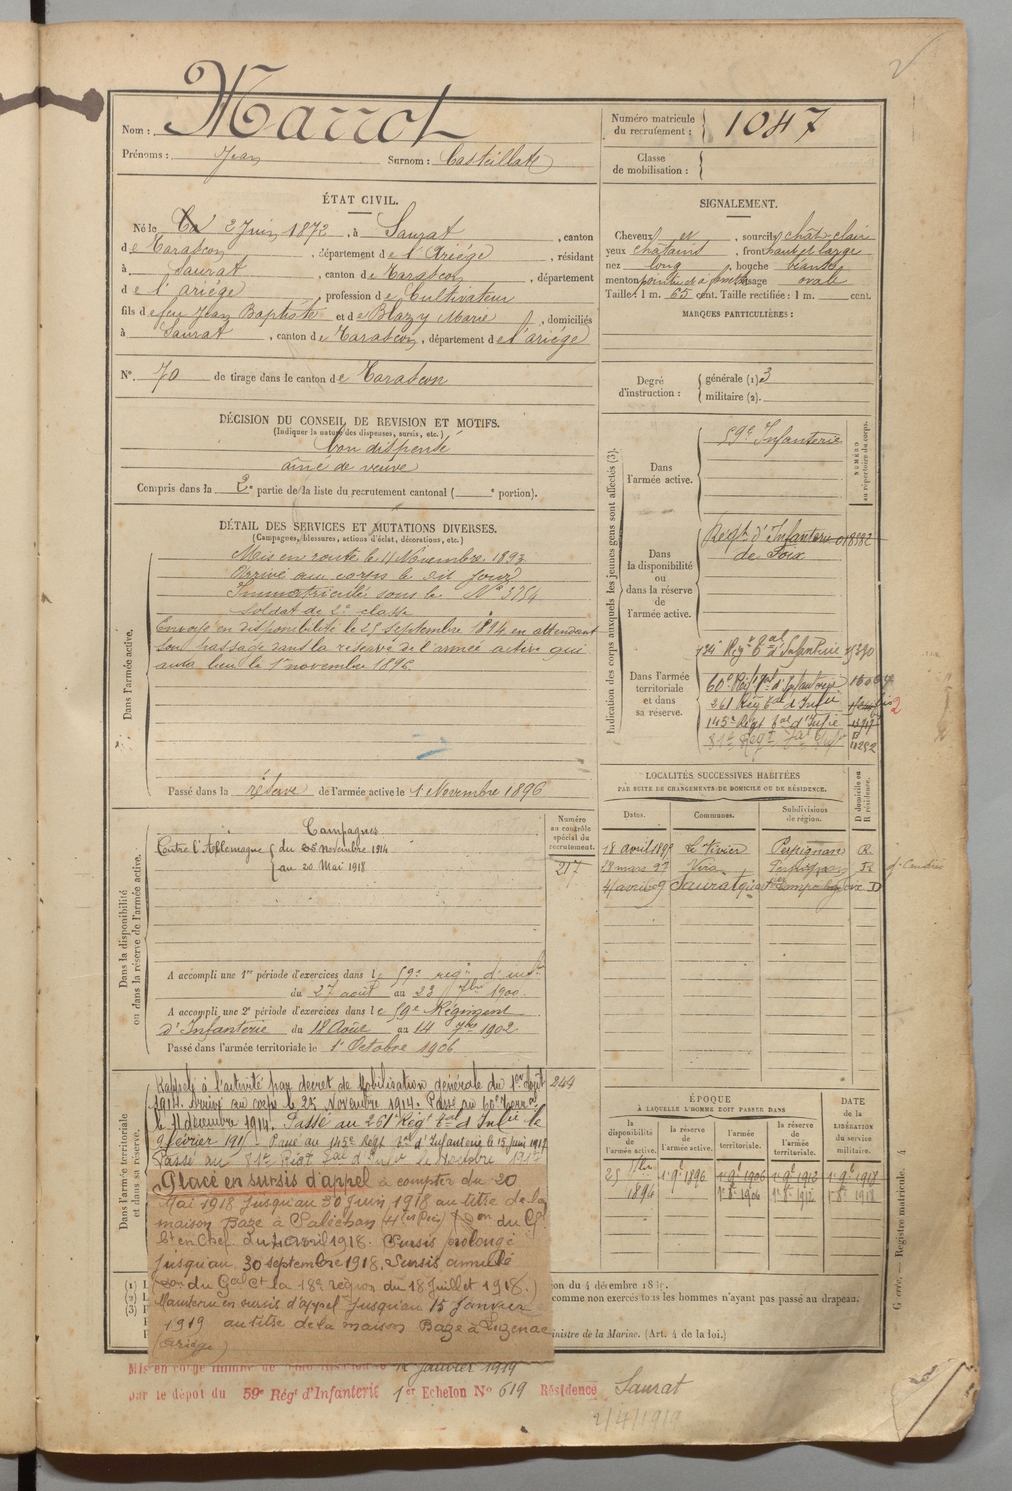 Nom : Marrot
Prénoms : Jean Surnom : Casteillat
Numéro matricule du recrutement : 1047
Classe de mobilisation :
ÉTAT CIVIL.
Né le 2 Juin 1872, à Saurat, canton
de Tarascon, département de l'Ariège, résidant
à Saurat, canton de Tarascon, département
de l'ariège, profession de Cultivateur
fils de feu Jean Baptiste et de Blazy Marie, domiciliés
à Saurat, canton de Tarascon, département de l'ariège
N° 70 de tirage dans le canton de Tarascon
SIGNALEMENT.
Cheveux et, sourcils chât-clair
yeux chatains, front haut et large
nez long, bouche béante
menton pointu et à fossette visage ovale
Taille : 1 m. 65 cent. Taille rectifiée : 1 m. cent.
MARQUES PARTICULIÈRES :
Degré d'instruction : générale (1) 3
militaire (2).
DÉCISION DU CONSEIL DE REVISION ET MOTIFS.
(Indiquer la nature des dispenses, sursis, etc.)
bon dispensé
aîné de veuve
Compris dans la 2e partie de la liste du recrutement cantonal ( e portion).
DÉTAIL DES SERVICES ET MUTATIONS DIVERSES.
(Campagnes, blessures, actions d'éclat, décorations, etc.)
Dans l'armée active.
Mis en route le 11 Novembre 1893
Arrivé au corps le dit jour
Immatriculé sous le N° 3754
Soldat de 2e classe
Envoyé en disponibilité le 25 Septembre 1894 en attendant
son passage dans la réserve de l'armée active qui
aura lieu le 1er novembre 1896.
Passé dans la réserve de l'armée active le 1 Novembre 1896
Indication des corps auxquels les jeunes gens sont affectés (3).
NUMÉRO au répertoire du corps.
Dans l'armée active.
59e Infanterie
Dans la disponibilité ou dans la réserve de l'armée active.
Regt d'Infanterie 018982
de Foix
Dans l'armée territoriale et dans sa réserve.
134e Regt tal d'Infanterie
60e Regt tal d'Infanterie
261 Reg tal d'Infie
145e Regt tal d'Infie
81e Regt tal Infie
2
LOCALITÉS SUCCESSIVES HABITÉES
PAR SUITE DE CHANGEMENTS DE DOMICILE OU DE RÉSIDENCE.
Dates. Communes. Subdivisions de région. D domicile ou R résidence.
18 avril 1897 Le Vivier Perpignan R.
28 mars 97 Vira Perpignan R
Saurat D
Dans la disponibilité ou dans la réserve de l'armée active.
Numéro au contrôle spécial du recrutement.
217
Campagnes
Contre l'Allemagne du 25 Novembre 1914
au 20 Mai 1918
A accompli une 1re période d'exercices dans le 59e regt d'infie
du 27 août au 23 7bre 1900.
A accompli une 2e période d'exercices dans le 59e Régiment
d'Infanterie du 18 Août au 14 7bre 1902
Passé dans l'armée territoriale le 1er Octobre 1906
Dans l'armée territoriale et dans sa réserve.
244
Rappelé à l'activité par decret de Mobilisation générale du 1er Août
1914. Arrivé au corps le 25 Novembre 1914. Passé au 60e terral
le 11 décembre 1914. Passé au 261e Regt tal d'Infie le
9 fevrier 191 Passé au 145e Regt tal d'Infanterie le 15 Juin 1917
Passé au 81e Regt tal d'Infie le octobre 1917
Placé en sursis d'appel à compter du 20
Mai 1918 jusqu'au 30 juin 1918 au titre de la
maison Baze à Saléchan (Htes Pyr) Don du Gl
Ct en Chef du avril 1918. Sursis prolongé
jusqu'au 30 septembre 1918. Sursis annulé
Don du Gal Ct la 18e région du 18 Juillet 1918.)
Maintenu en sursis d'appel jusqu'au 15 Janvier
1919 au titre de la maison Baze à Luzenac
(Ariège)
ÉPOQUE
À LAQUELLE L'HOMME DOIT PASSER DANS
la disponibilité de l'armée active. la réserve de l'armée active. l'armée territoriale. la réserve de l'armée territoriale. DATE de la LIBÉRATION du service militaire.
25 7bre 1894 1er 9bre 1896 1er 9bre 1906 1er 9bre 1912 1er 9bre 1917
1er 8bre 1906 1er 8bre 1912 1er 8bre 1918
(1) (2) (3)
comme non exercés tous les hommes n'ayant pas passé au drapeau.
ministre de la Marine. (Art. 4 de la loi.)
Registre matricule. 4
Janvier 1919
par le dépôt du 59e Régt d'Infanterie 1er Echelon N° 619 Résidence Saurat
2/4/1919